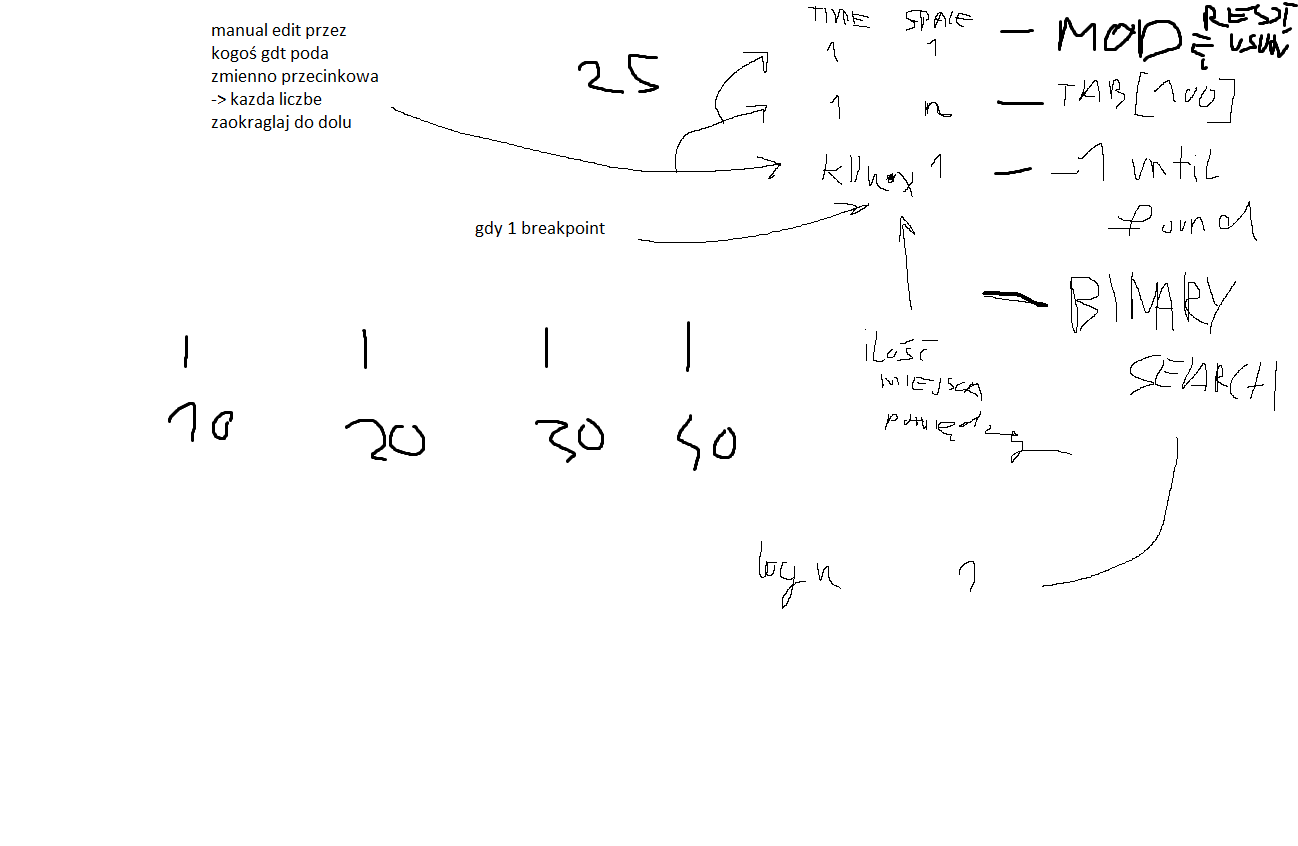 manual edit przez
kogoś gdt poda
zmienno przecinkowa
-> kazda liczbe
zaokraglaj do dolu
25
TIME SPACE
1 1 — MOD
1 n — TAB[100]
1 — -1 until
found
gdy 1 breakpoint
— BINARY
SEARCH
ilość
MIEJSCA
pomiędzy
10 20 30 40
log n 1